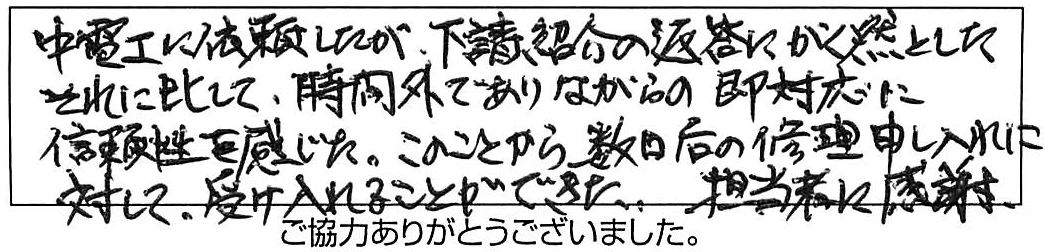 中電工に依頼したが、下請紹介の返答にがく然とした
それに比して、時間外でありながらの即対応に
信頼性を感じた。このことから数日后の修理申し入れに
対して、受け入れることができた。担当者に感謝。
ご協力ありがとうございました。